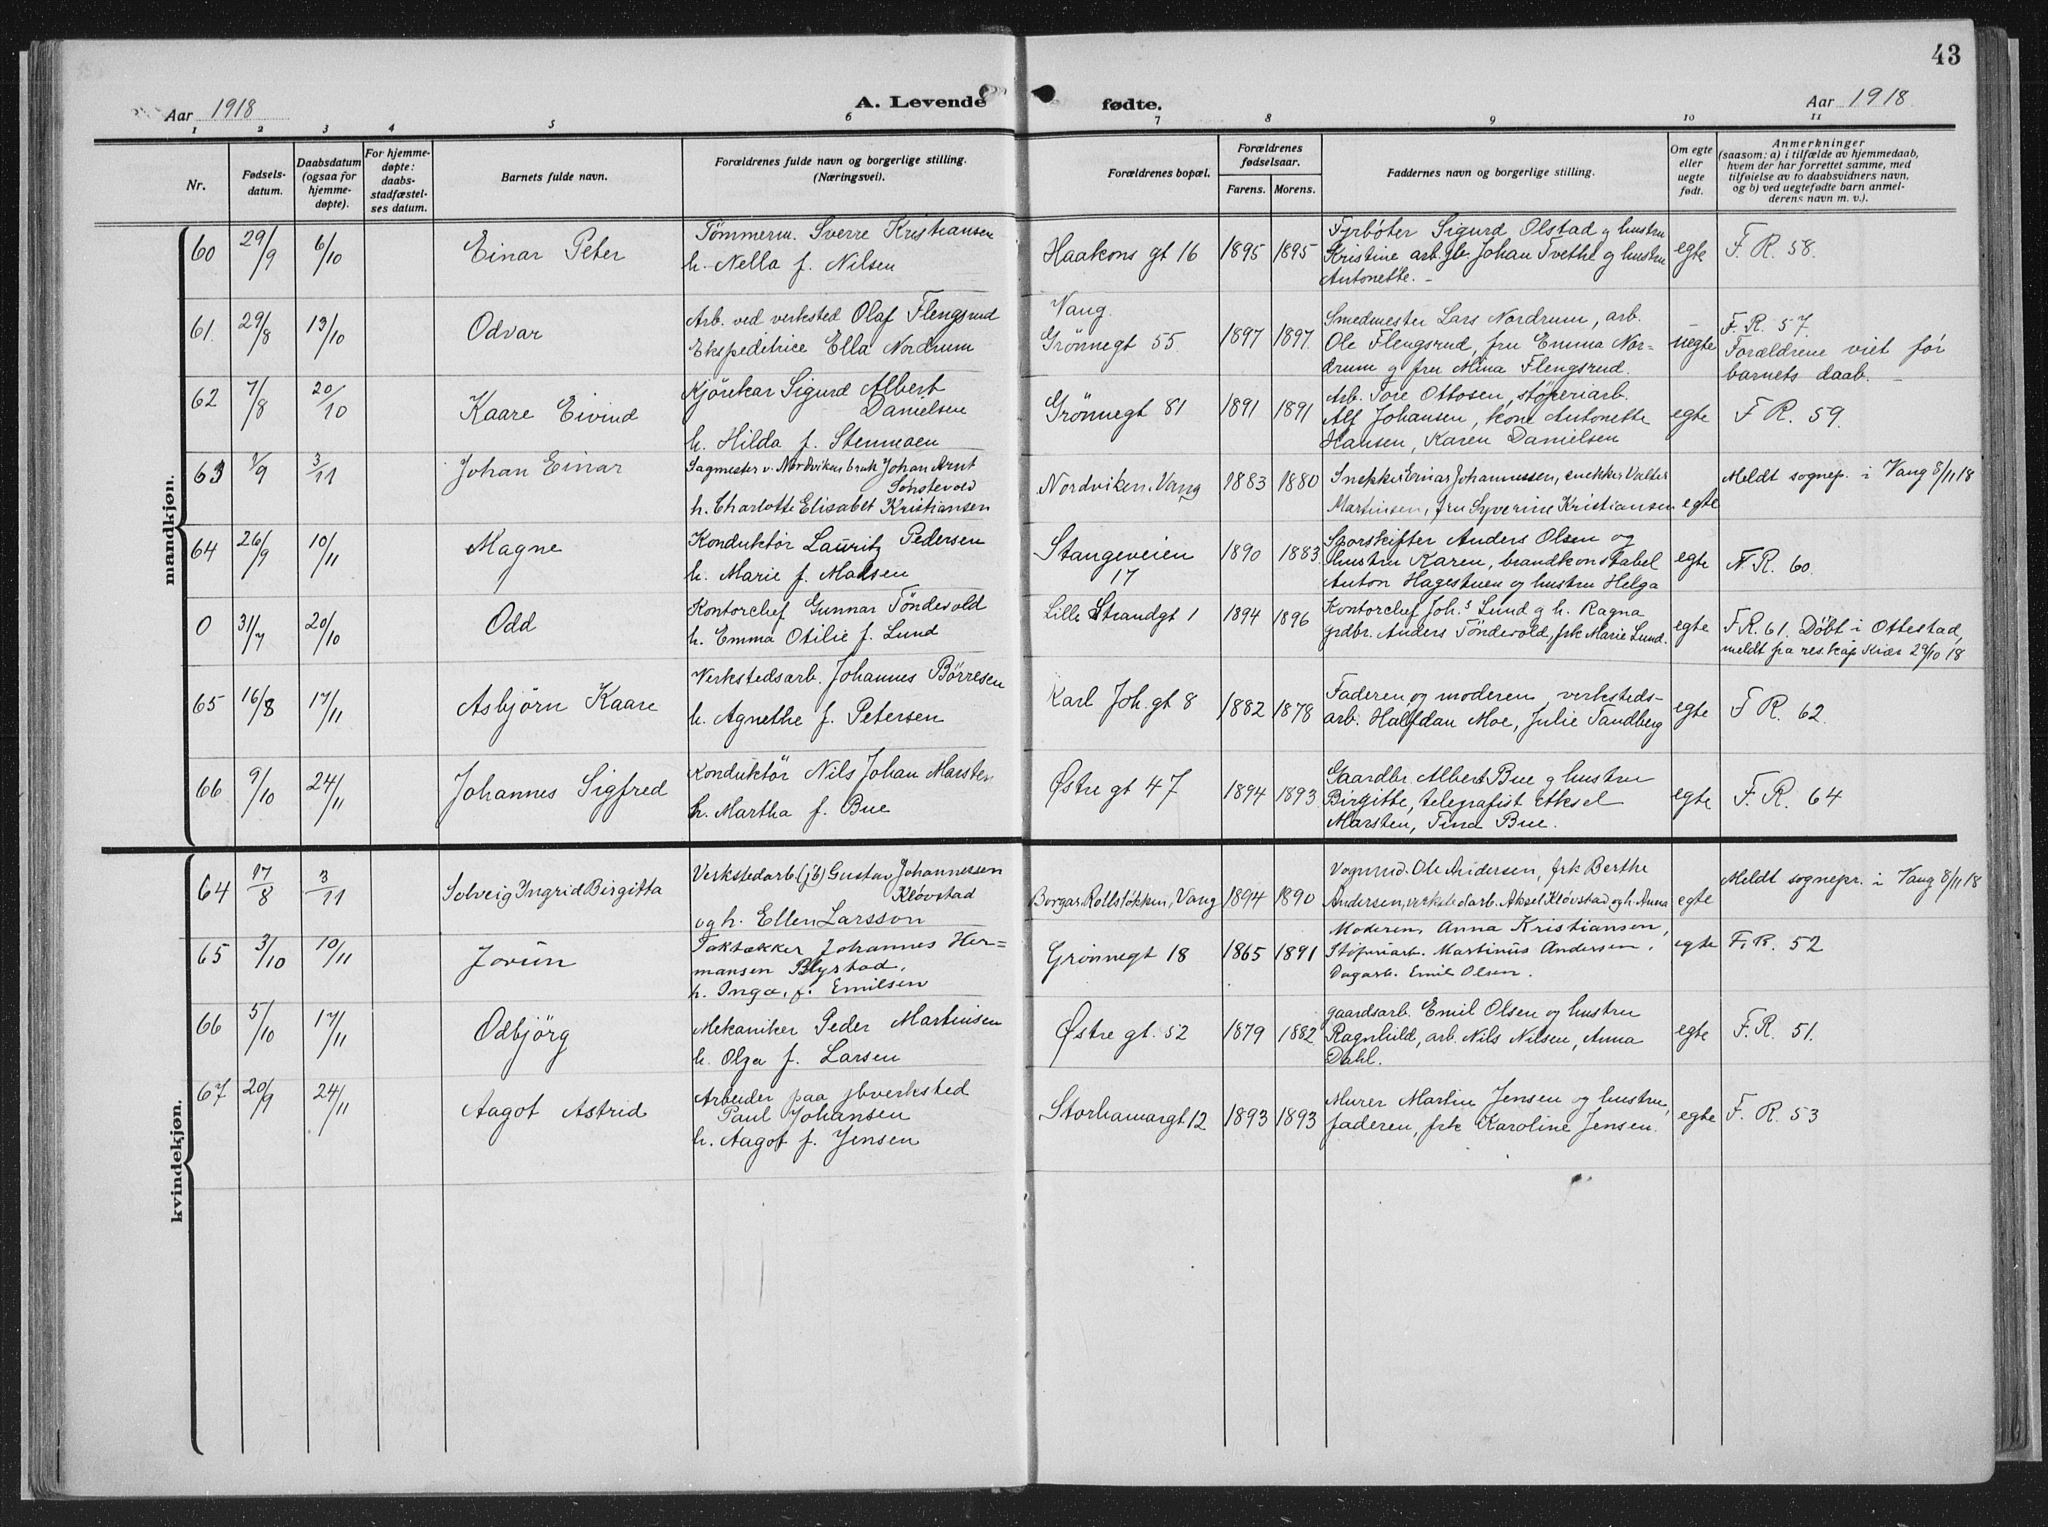 43
Aar 1918 A. Levende fødte. Aar 1918
1 2 3 4 5 6 7 8 9 10 11
Nr. Fødsels-datum. Daabsdatum (ogsaa for hjemme-døpte). For hjemme-døpte: daabs-stadfæstel-ses datum. Barnets fulde navn. Forældrenes fulde navn og borgerlige stilling. (Næringsvei). Forældrenes bopæl. Forældrenes fødselsaar. Farens. Morens. Faddernes navn og borgerlige stilling. Om egte eller uegte født. Anmerkninger (saasom: a) i tilfælde av hjemmedaab, hvem der har forrettet samme, med tilføielse av to daabsvidners navn, og b) ved uegtefødte barn anmel-derens navn m. v.).
mandkjøn.
60 29/9 6/10 Einar Peter Tømmerm. Sverre Kristiansen Haakons gt 16 1895 1895 Fyrbøter Sigurd Olstad g hustru egte F. R. 58.
h. Nella f. Nilsen Kristine arb. Johan Tvethe g hustru
Antonette. -
61. 29/8 13/10 Odvar Arb. ved verksted Olaf Flengsrud Vang. 1897 1897. Smedmester Lars Nordrum, arb. uegte F. R. 57.
Ekspeditrice Ella Nordrum Grönnegt 55 Ole Flengsrud, fru Emma Nor- Forældrene viet før
drum g fru Mina Flengsrud. barnets daab. -
62 7/8 20/10 Kaare Eivind Kjörekar Sigurd Albert Grönnegt 81 1891 1891 Arb. Tore Ottosen, støperiarb. egte F R. 59.
Danielsen Alf Johansen, kone Antonette
h. Hilda f. Stenmoen Hansen, Karen Danielsen
63 1/9 3/11 Johan Einar Sagmester v. Nordvikens bruk Johan Arnt Nordviken, Vang 1883 1880 Snekker Einar Johannessen, snekker Valter egte Meldt sognep. i Vang 8/11 18
Sönstevold
h. Charlotte Elisabet Kristiansen Martinsen, fru Syverine Kristiansen
64 26/9 10/11 Magne Konduktör Lauritz Pedersen Stangeveien 17 1890 1883 Sporskifter Anders Olsen og egte F. R. 60.
h. Marie f. Madsen hustru Karen, brandkonstabel
Anton Hagestuen og hustru Helga
0 31/7 20/10 Odd Kontorchef Gunnar Töndevold Lille Strandgt 1 1894 1896 Kontorchef Joh.s Lund g h. Ragna egte F. R. 61. Døbt i Ottestad,
h. Emma Otilie f. Lund grdbr. Anders Töndevold, frk Marie Lund. meldt fra res. kap Kiær 29/10 18
65 16/8 17/11 Asbjörn Kaare Verkstedsarb. Johannes Børresen Karl Joh. gt 8 1882 1878 Faderen og moderen verksteds- egte F R. 62.
h. Agnethe f. Petersen arb. Halfdan Moe, Julie Tandberg
66 9/10 24/11 Johannes Sigfred Konduktör Nils Johan Marsten Østre gt 47 1894 1893 Gaardbr. Albert Bue g hustru egte F. R. 64
h. Martha f. Bue Birgitte, telegrafist Aksel
Marsten, Tina Bue.
kvindekjøn.
64 17/8 3/11 Solveig Ingrid Birgitta Verkstedarb (jb) Gustav Johannessen Borgar. Rollsløkken, Vang 1894 1890 Vognmd. Ole Andersen, frk Berthe egte Meldt sognepr. i Vang 8/11 18
Kløvstad
og h. Ellen Larsson Andersen, verkstedarb. Aksel Kløvstad og h. Anna
65 3/10 10/11 Jorun Taktækker Johannes Her- Grönnegt 18 1865 1891 Moderen, Anna Kristiansen, egte F. R. 52
mansen Blystad. Støperiarb. Martinus Andersen,
h. Inga, f. Emilsen Dagarb. Emil Olsen.
66 5/10 17/11 Odbjörg Mekaniker Peder Martinsen Østre gt. 52 1879 1882 gaardsarb. Emil Olsen og hustru egte F. R. 51.
h. Olga f. Larsen Ragnhild, arb. Nils Nilsen, Anna
Dahl.
67 20/9 24/11 Aagot Astrid Arbeider paa jbverksted Storhamargt 12 1893 1893 Murer Martin Jensen og hustru, egte F. R. 53
Paul Johansen faderen, frk Karoline Jensen.
h. Aagot f. Jensen